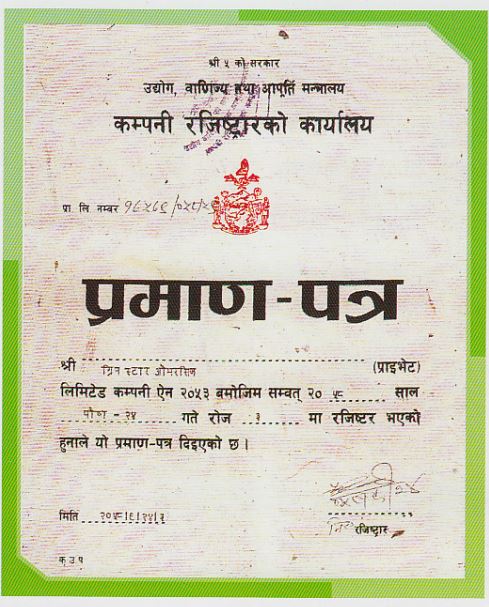 श्री ५ को सरकार
उद्योग, वाणिज्य तथा आपूर्ति मन्त्रालय
कम्पनी रजिष्ट्रारको कार्यालय
प्रा लि नम्बर
प्रमाण-पत्र
श्री ग्रिन स्टार ओभरसिज (प्राइभेट)
लिमिटेड कम्पनी ऐन २०५३ बमोजिम सम्वत् २० ५८ साल
पौष - २४ गते रोज ३ मा रजिष्टर भएको
हुनाले यो प्रमाण-पत्र दिइएको छ।
मिति
रजिष्ट्रार
क उ प